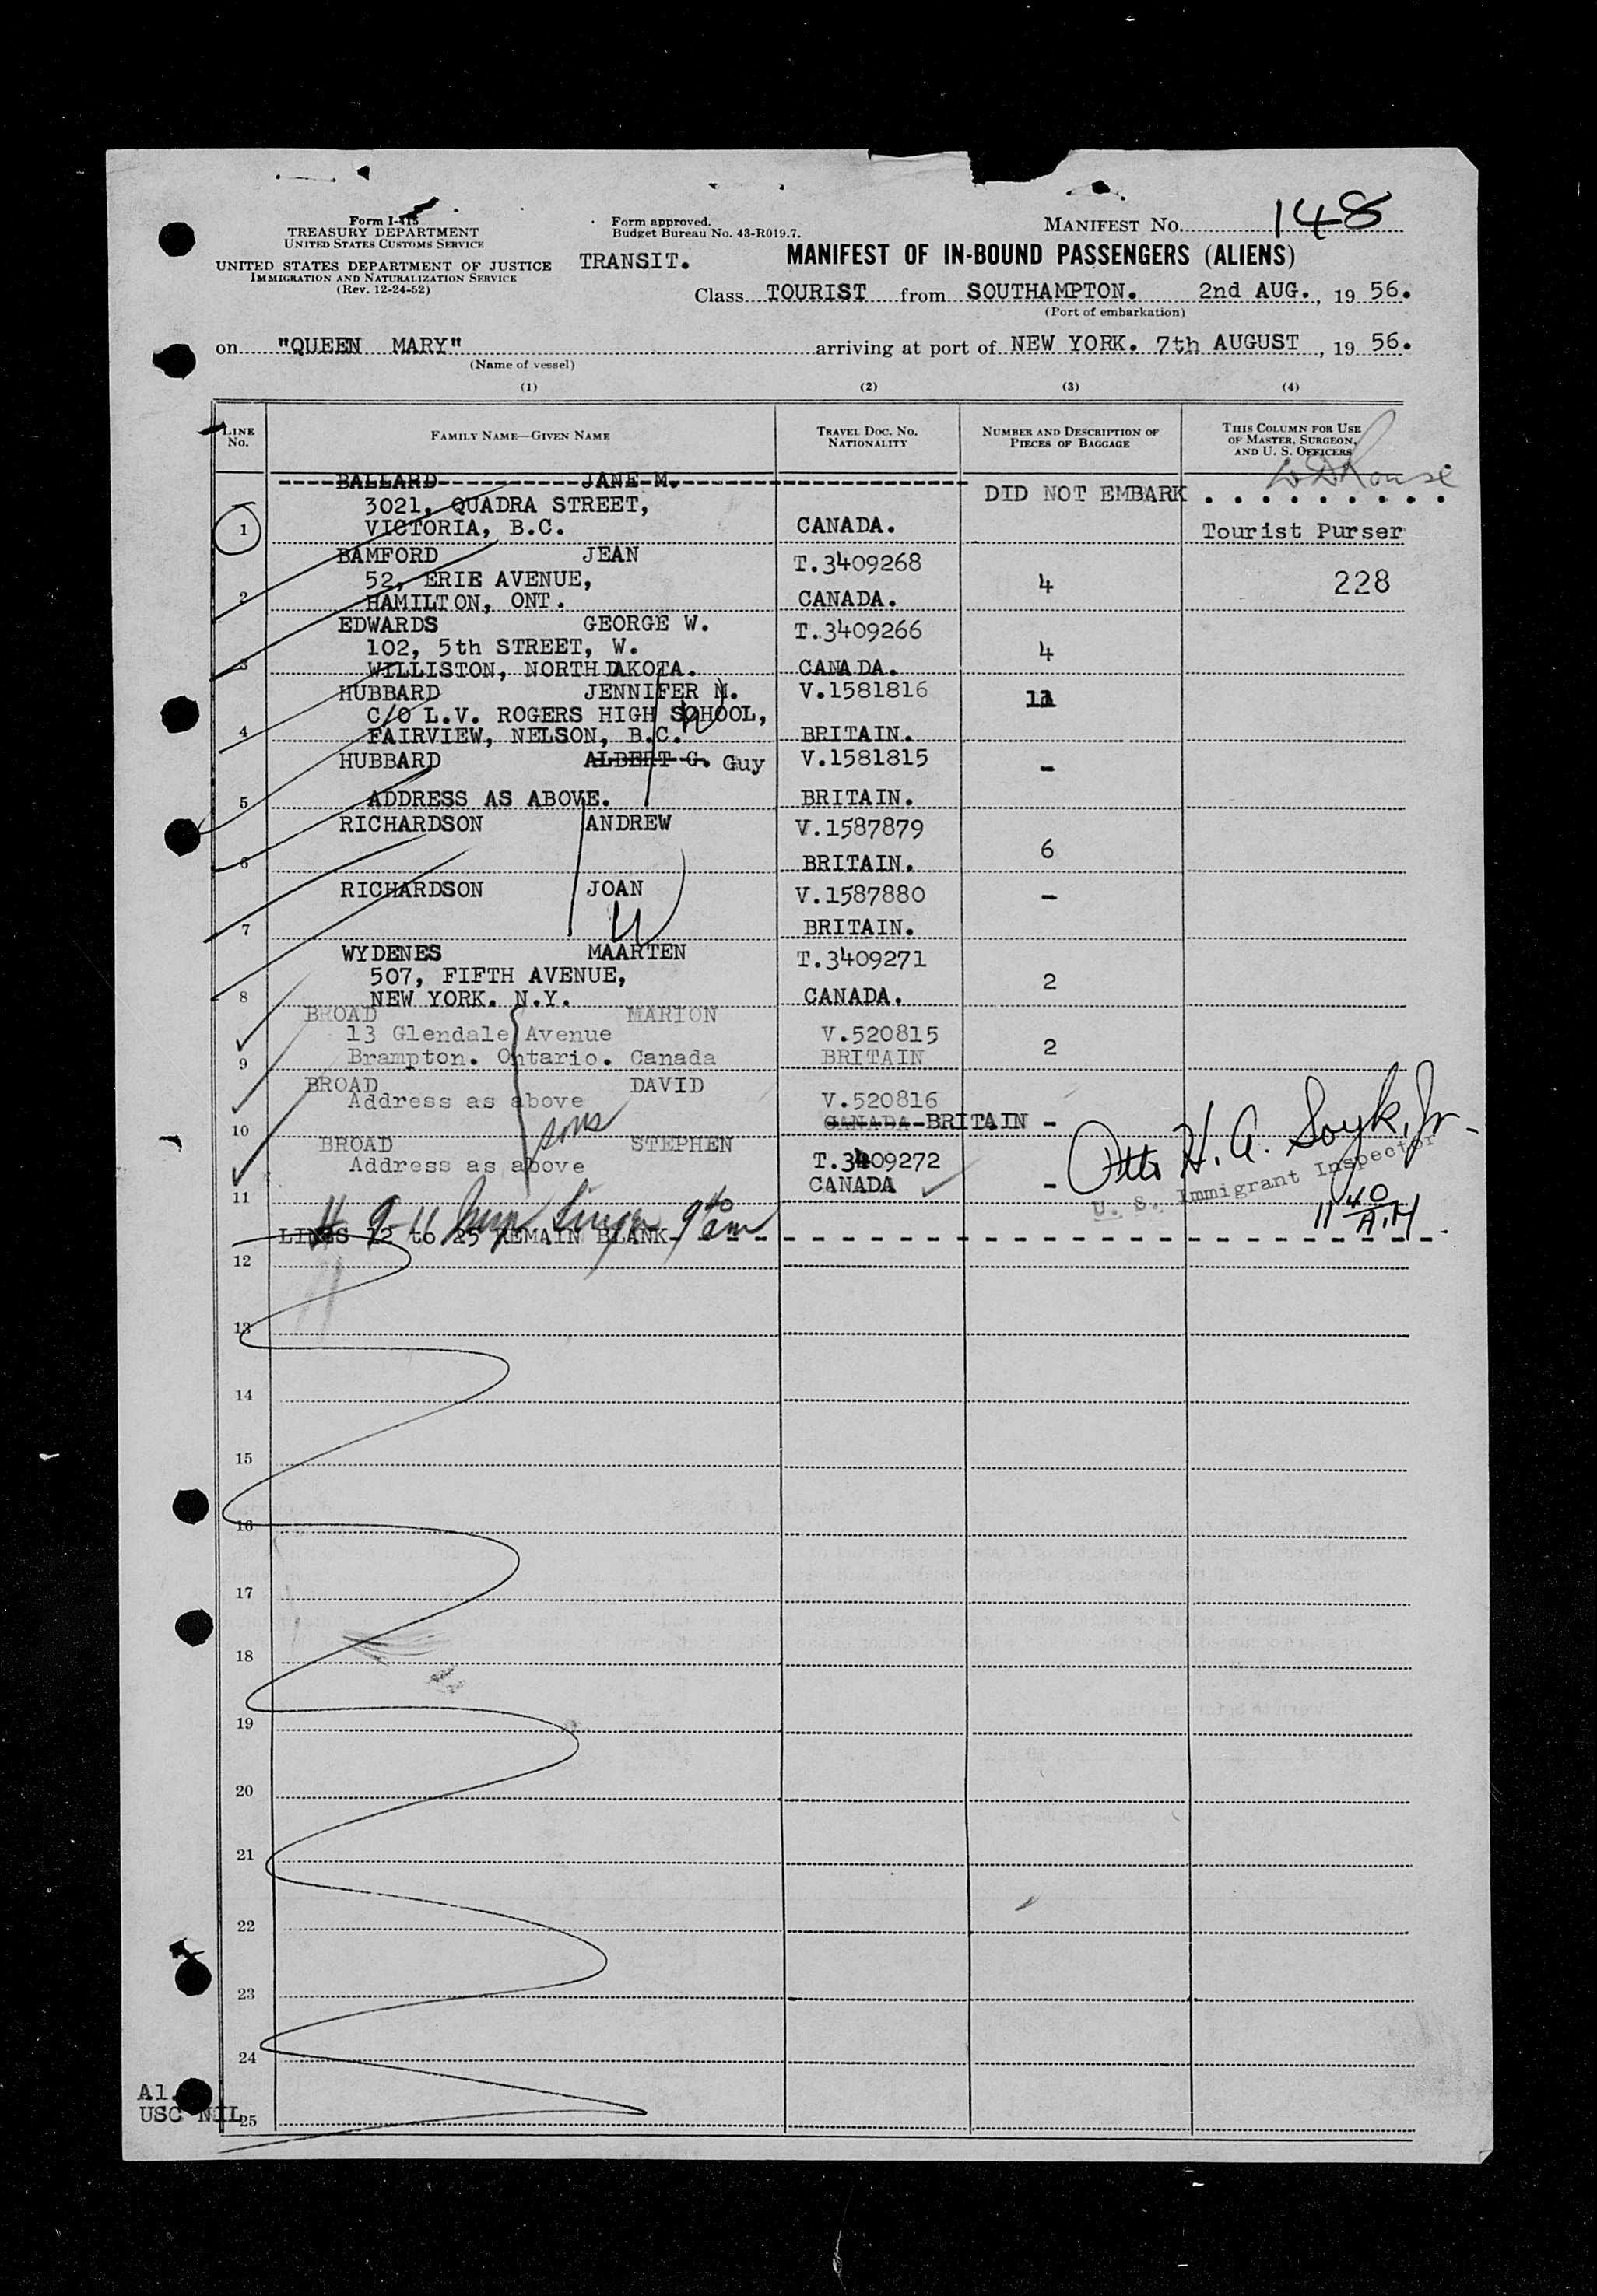 Form I-415
TREASURY DEPARTMENT
UNITED STATES CUSTOMS SERVICE
UNITED STATES DEPARTMENT OF JUSTICE
IMMIGRATION AND NATURALIZATION SERVICE
(Rev. 12-24-52)
Form approved.
Budget Bureau No. 43-R019.7.
MANIFEST No. 148
TRANSIT.
MANIFEST OF IN-BOUND PASSENGERS (ALIENS)
Class TOURIST from SOUTHAMPTON. 2nd AUG., 19 56.
(Port of embarkation)
on "QUEEN MARY" arriving at port of NEW YORK. 7th AUGUST, 19 56.
(Name of vessel)
(1) (2) (3) (4)
LINE No. FAMILY NAME—GIVEN NAME TRAVEL DOC. No. NATIONALITY NUMBER AND DESCRIPTION OF PIECES OF BAGGAGE THIS COLUMN FOR USE OF MASTER, SURGEON, AND U. S. OFFICERS
BALLARD JANE M.
3021, QUADRA STREET, DID NOT EMBARK
1 VICTORIA, B.C. CANADA. Tourist Purser
BAMFORD JEAN T.3409268
52, ERIE AVENUE, 4 228
2 HAMILTON, ONT. CANADA.
EDWARDS GEORGE W. T.3409266
102, 5th STREET, W. 4
3 WILLISTON, NORTH DAKOTA. CANADA.
HUBBARD JENNIFER M. V.1581816 11
C/O L.V. ROGERS HIGH SCHOOL,
4 FAIRVIEW, NELSON, B.C. BRITAIN.
HUBBARD ALBERT G. Guy V.1581815 -
5 ADDRESS AS ABOVE. BRITAIN.
RICHARDSON ANDREW V.1587879
6 BRITAIN. 6
RICHARDSON JOAN V.1587880 -
7 BRITAIN.
WYDENES MAARTEN T.3409271
507, FIFTH AVENUE, 2
8 NEW YORK. N.Y. CANADA.
BROAD MARION
13 Glendale Avenue V.520815
9 Brampton. Ontario. Canada BRITAIN 2
BROAD DAVID
Address as above V.520816
10 sons CANADA BRITAIN -
BROAD STEPHEN
Address as above T.3409272
11 CANADA -
Otto H. A. Soyk, Jr.
U. S. Immigrant Inspector
11 40 A.M.
LINES 12 to 25 REMAIN BLANK
12
13
14
15
16
17
18
19
20
21
22
23
24
25
Al.
USC NIL